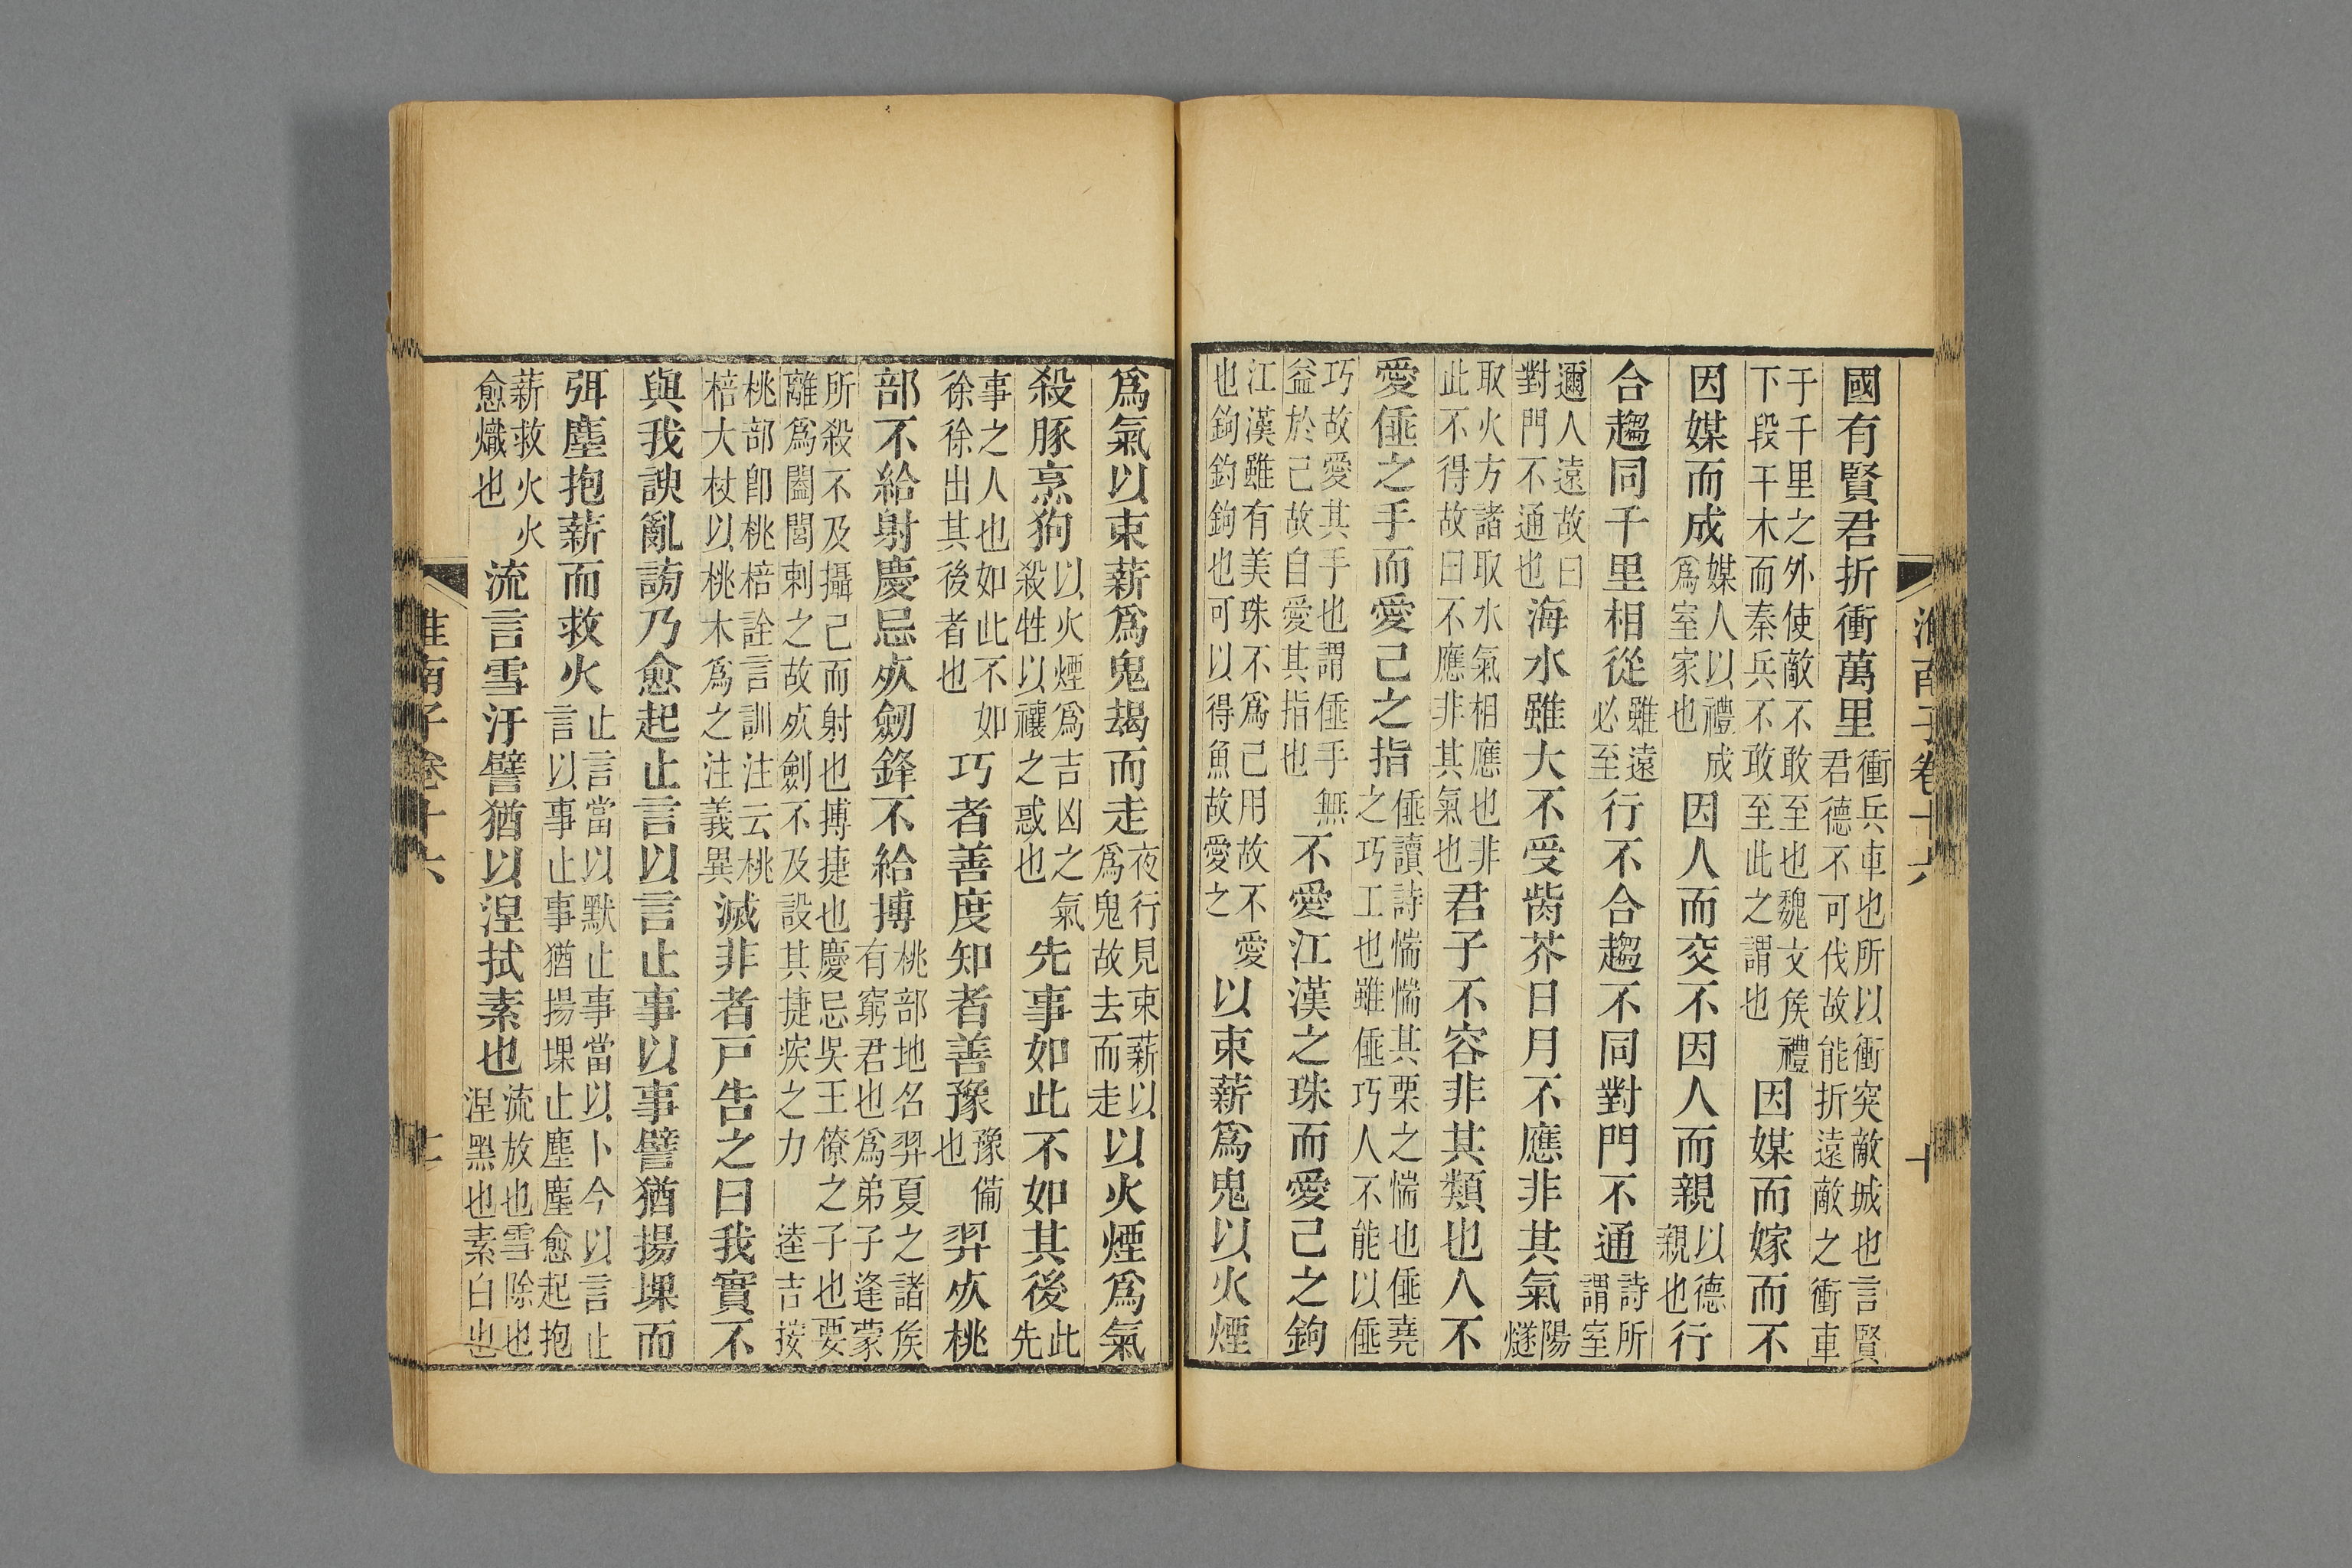 淮南子卷十六
十
國有賢君折衝萬里衝兵車也所以衝突敵城也言賢君德不可伐故能折遠敵之衝車
于千里之外使敵不敢至也魏文矦禮下段干木而秦兵不敢至此之謂也因媒而嫁而不
因媒而成媒人以禮成爲室家也因人而交不因人而親以德親也行
合趨同千里相從雖遠必至行不合趨不同對門不通詩所謂室
邇人遠故曰對門不通也海水雖大不受胔芥日月不應非其氣陽燧
取火方諸取水氣相應也非此不得故曰不應非其氣也君子不容非其類也人不
愛倕之手而愛己之指倕讀詩惴惴其栗之惴也倕堯之巧工也雖倕巧人不能以倕
巧故愛其手也謂倕手無益於己故自愛其指也不愛江漢之珠而愛己之鉤
江漢雖有美珠不爲己用故不愛也鉤鉤也可以得魚故愛之以束薪爲鬼以火煙
爲氣以束薪爲鬼朅而走夜行見束薪以爲鬼故去而走以火煙爲氣
殺豚烹狗以火煙爲吉凶之氣殺牲以禳之惑也先事如此不如其後此先
事之人也如此不如徐徐出其後者也巧者善度知者善豫豫備也羿㱙桃
部不給射慶忌㱙劒鋒不給搏桃部地名羿夏之諸矦有窮君也爲弟子逢蒙
所殺不及攝己而射也搏捷也慶忌吳王僚之子也要離爲闔閭刺之故㱙劍不及設其捷疾之力逵吉按
桃部卽桃棓詮言訓注云桃棓大杖以桃木爲之注義異滅非者戸告之曰我實不
與我諛亂謗乃愈起止言以言止事以事譬猶揚堁而
弭塵抱薪而救火止言當以默止事當以卜今以言止言以事止事猶揚堁止塵塵愈起抱
薪救火火愈熾也流言雪汙譬猶以涅拭素也流放也雪除也涅黑也素白也
淮南子卷十六